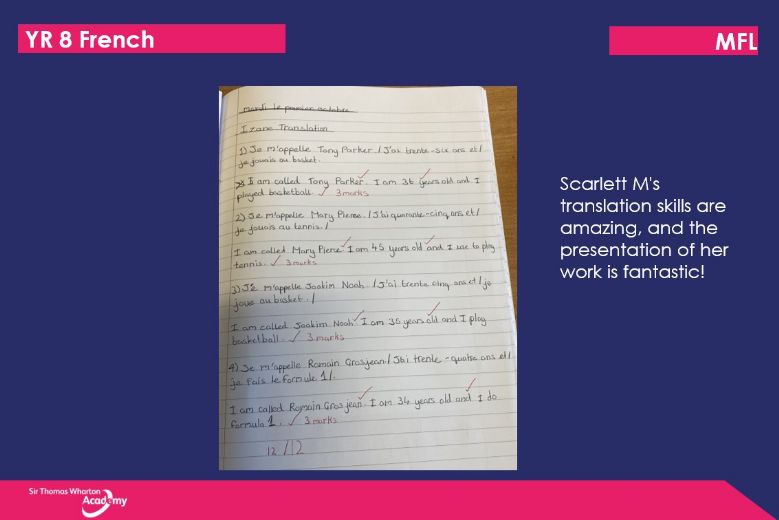 YR 8 French
MFL
mardi le premier octobre
Izane Translation
1) Je m'appelle Tony Parker. / J'ai trente-six ans et /
je jouais au basket.
I am called Tony Parker. I am 36 years old and I
played basketball. 3 marks
2) Je m'appelle Mary Pierce. / J'ai quarante-cinq ans et /
je jouais au tennis. /
I am called Mary Pierce I am 45 years old and I use to play
tennis. 3 marks
3) Je m'appelle Joakim Noah. / J'ai trente cinq ans et / je
joue au basket. /
I am called Joakim Noah. I am 35 years old and I play
basketball. 3 marks
4) Je m'appelle Romain Grosjean / J'ai trente-quatre ans et /
je fais le formule 1/.
I am called Romain Grosjean. I am 34 years old and I do
formula 1. 3 marks
12/12
Scarlett M's
translation skills are
amazing, and the
presentation of her
work is fantastic!
Sir Thomas Wharton
Academy